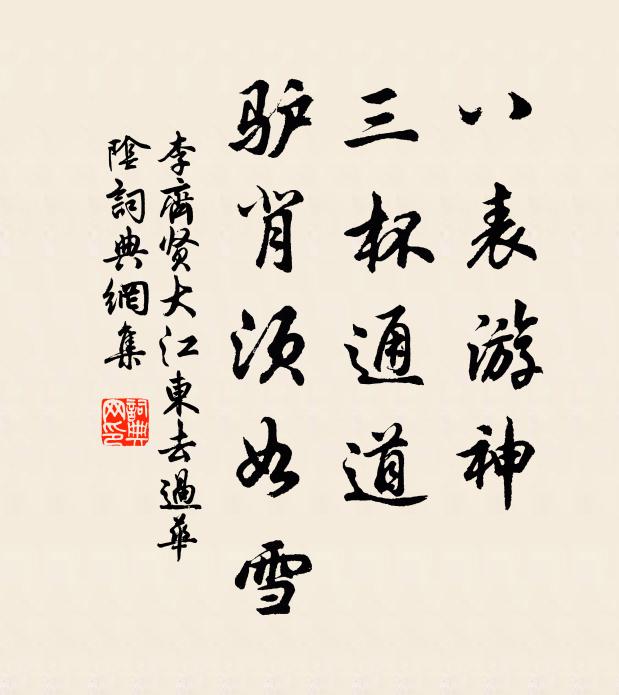 八表游神
三杯通道
驴背须如雪
李齊贤大江東去過華
陰詞典網集
詞典
网印